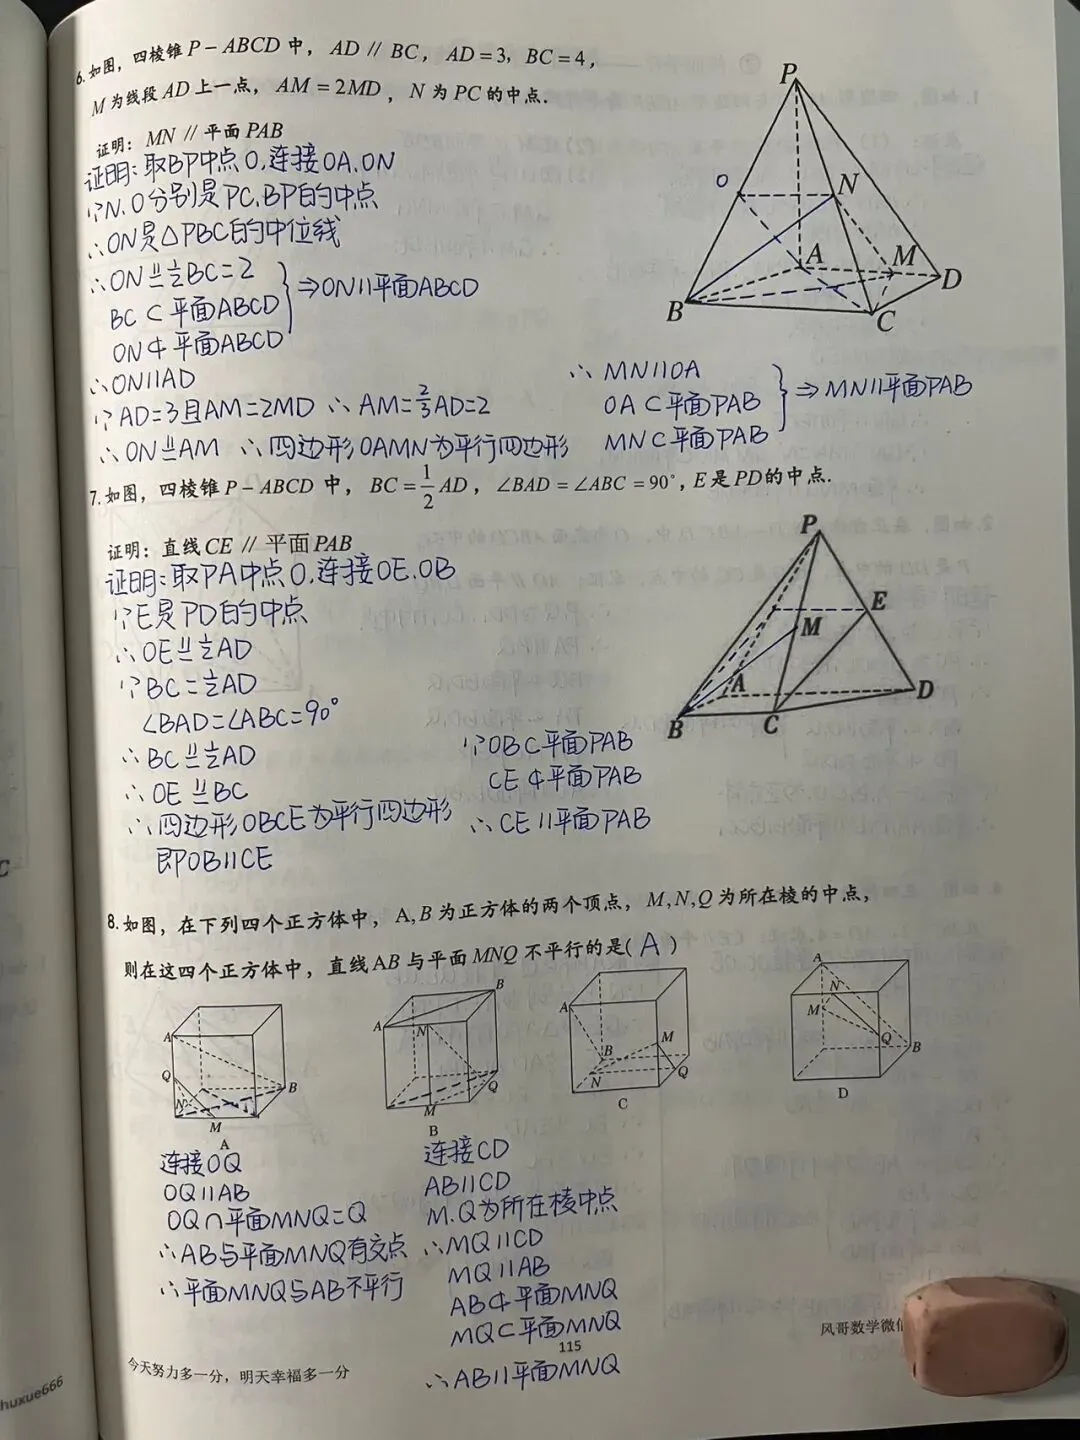 6. 如图，四棱锥 P－ABCD 中， AD // BC， AD＝3， BC＝4，
M 为线段 AD 上一点， AM＝2MD ， N 为 PC 的中点.
证明： MN // 平面 PAB
证明：取BP中点O,连接OA.ON
∵N.O分别是PC.BP的中点
∴ON是△PBC的中位线
∴ON∥=½BC=2
BC⊂平面ABCD
ON⊄平面ABCD
⇒ON∥平面ABCD
∴ON∥AD
∵AD=3且AM=2MD ∴AM=⅔AD=2
∴ON∥=AM ∴四边形OAMN为平行四边形
∴MN∥OA
OA⊂平面PAB
MN⊂平面PAB
⇒MN∥平面PAB
P
O
N
A
M
D
B
C
7. 如图，四棱锥 P－ABCD 中， BC＝1/2 AD ， ∠BAD＝∠ABC＝90°， E 是 PD 的中点.
证明：直线 CE // 平面 PAB
证明:取PA中点O,连接OE.OB
∵E是PD的中点
∴OE∥=½AD
∵BC=½AD
∠BAD=∠ABC=90°
∴BC∥=½AD
∴OE∥=BC
∴四边形OBCE为平行四边形
即OB∥CE
∵OB⊂平面PAB
CE⊄平面PAB
∴CE∥平面PAB
P
E
M
A
D
B
C
8. 如图，在下列四个正方体中， A,B 为正方体的两个顶点， M,N,Q 为所在棱的中点，
则在这四个正方体中，直线 AB 与平面 MNQ 不平行的是( A )
A
Q
N
M
B
A
A
B
N
M
Q
B
A
B
N
M
Q
C
A
N
M
Q
B
D
连接OQ
OQ∥AB
OQ∩平面MNQ=Q
∴AB与平面MNQ有交点
∴平面MNQ与AB不平行
连接CD
AB∥CD
M.Q为所在棱中点
∴MQ∥CD
MQ∥AB
AB⊄平面MNQ
MQ⊂平面MNQ
∴AB∥平面MNQ
风哥数学微信
115
今天努力多一分，明天幸福多一分
huxue666